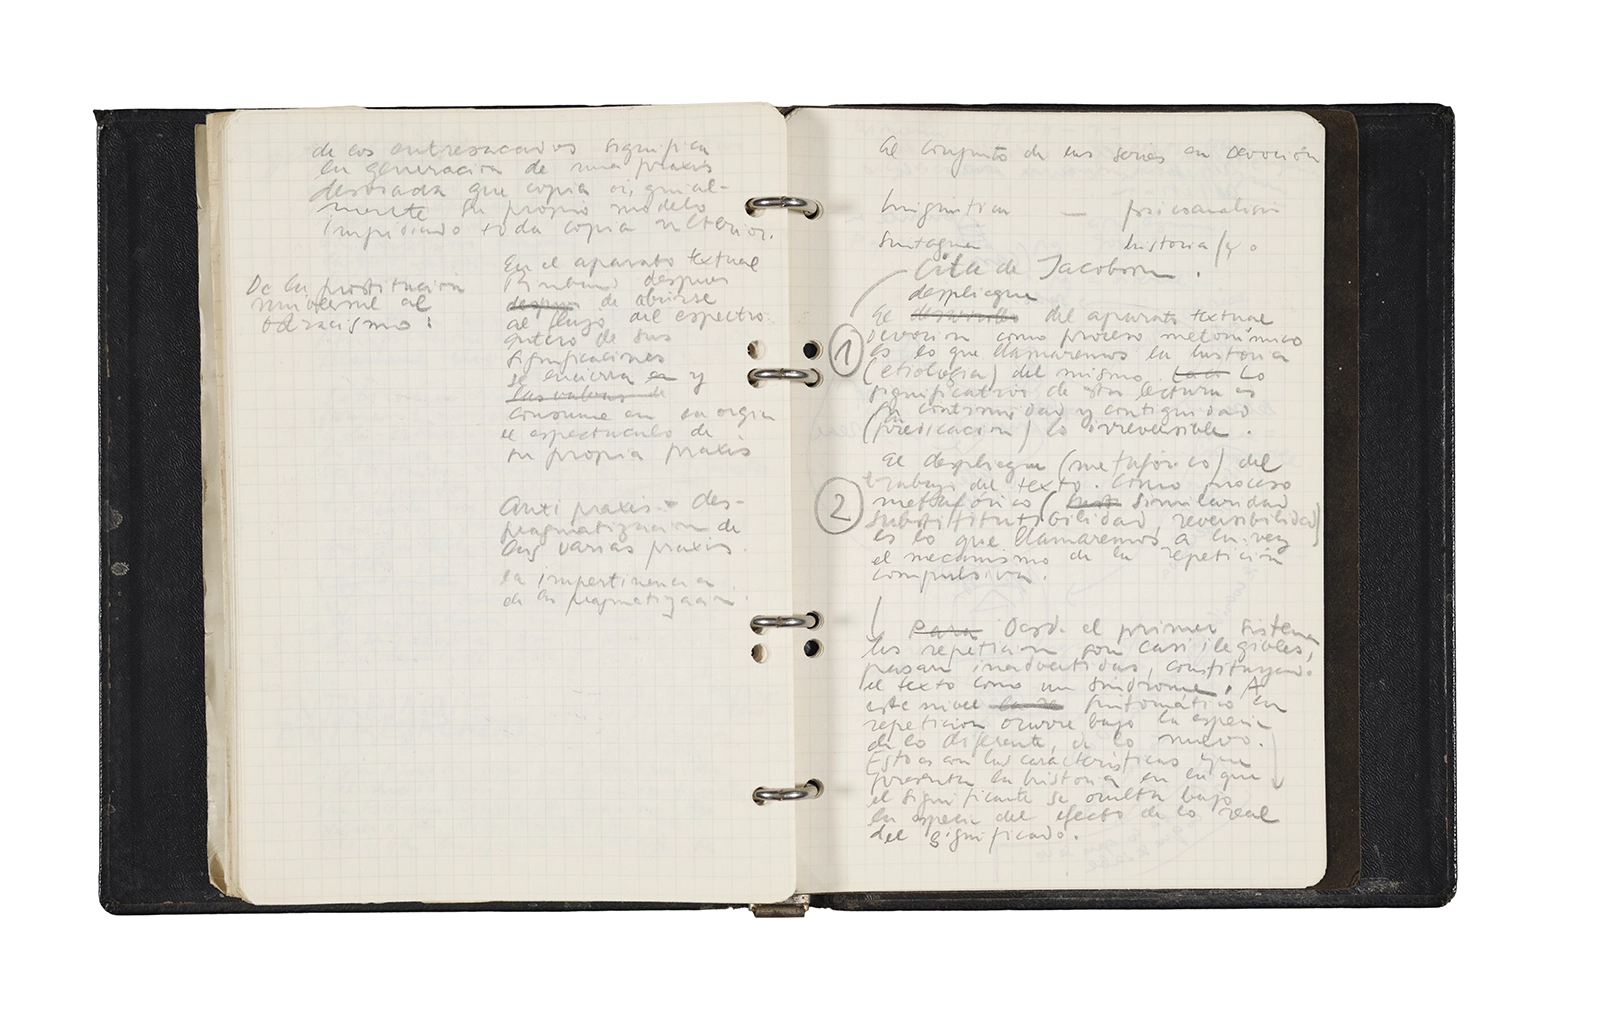 de los entresacados significa
la generacion de una praxis
desviada que copia original-
mente su propio modelo
impidiendo toda copia ulterior.
De la prostitucion
universal al
:
En el aparato textual
despues
despues de abrirse
al flujo del espectro
entero de sus
significaciones
se encierra en y
consume en su orgia
el espectaculo de
su propia praxis
Anti praxis = des-
pragmatizacion de
las varias praxis.
la impertinencia
de la pragmatizacion.
El conjunto de las series en Devoción
linguistica — psicoanalisis
Sintagma historia/y o
Cita de Jacobson.
despliegue
El desarrollo del aparato textual
Devocion como proceso metonímico
es lo que llamaremos la historia
(etiologia) del mismo. Lo
significativo de esta lectura es
la continuidad y contiguidad
(predicacion) lo irreversible.
1
El despliegue (metafórico) del
trabajo del texto. Como proceso
2
metafórico ( similaridad
substitutibilidad, reversibilidad)
es lo que llamaremos a la vez
el mecanismo de la repetición
compulsiva.
Para Desde el primer sistema
las repeticion son casi ilegibles,
pasan inadvertidas, constituyendo
el texto como un sindrome. A
este nivel sintomatico la
repeticion ocurre bajo la especie
de lo diferente, de lo nuevo.
Estas son las caracteristicas que
presenta la historia en la que
el significante se oculta bajo
la especie del efecto de lo real
del significado.